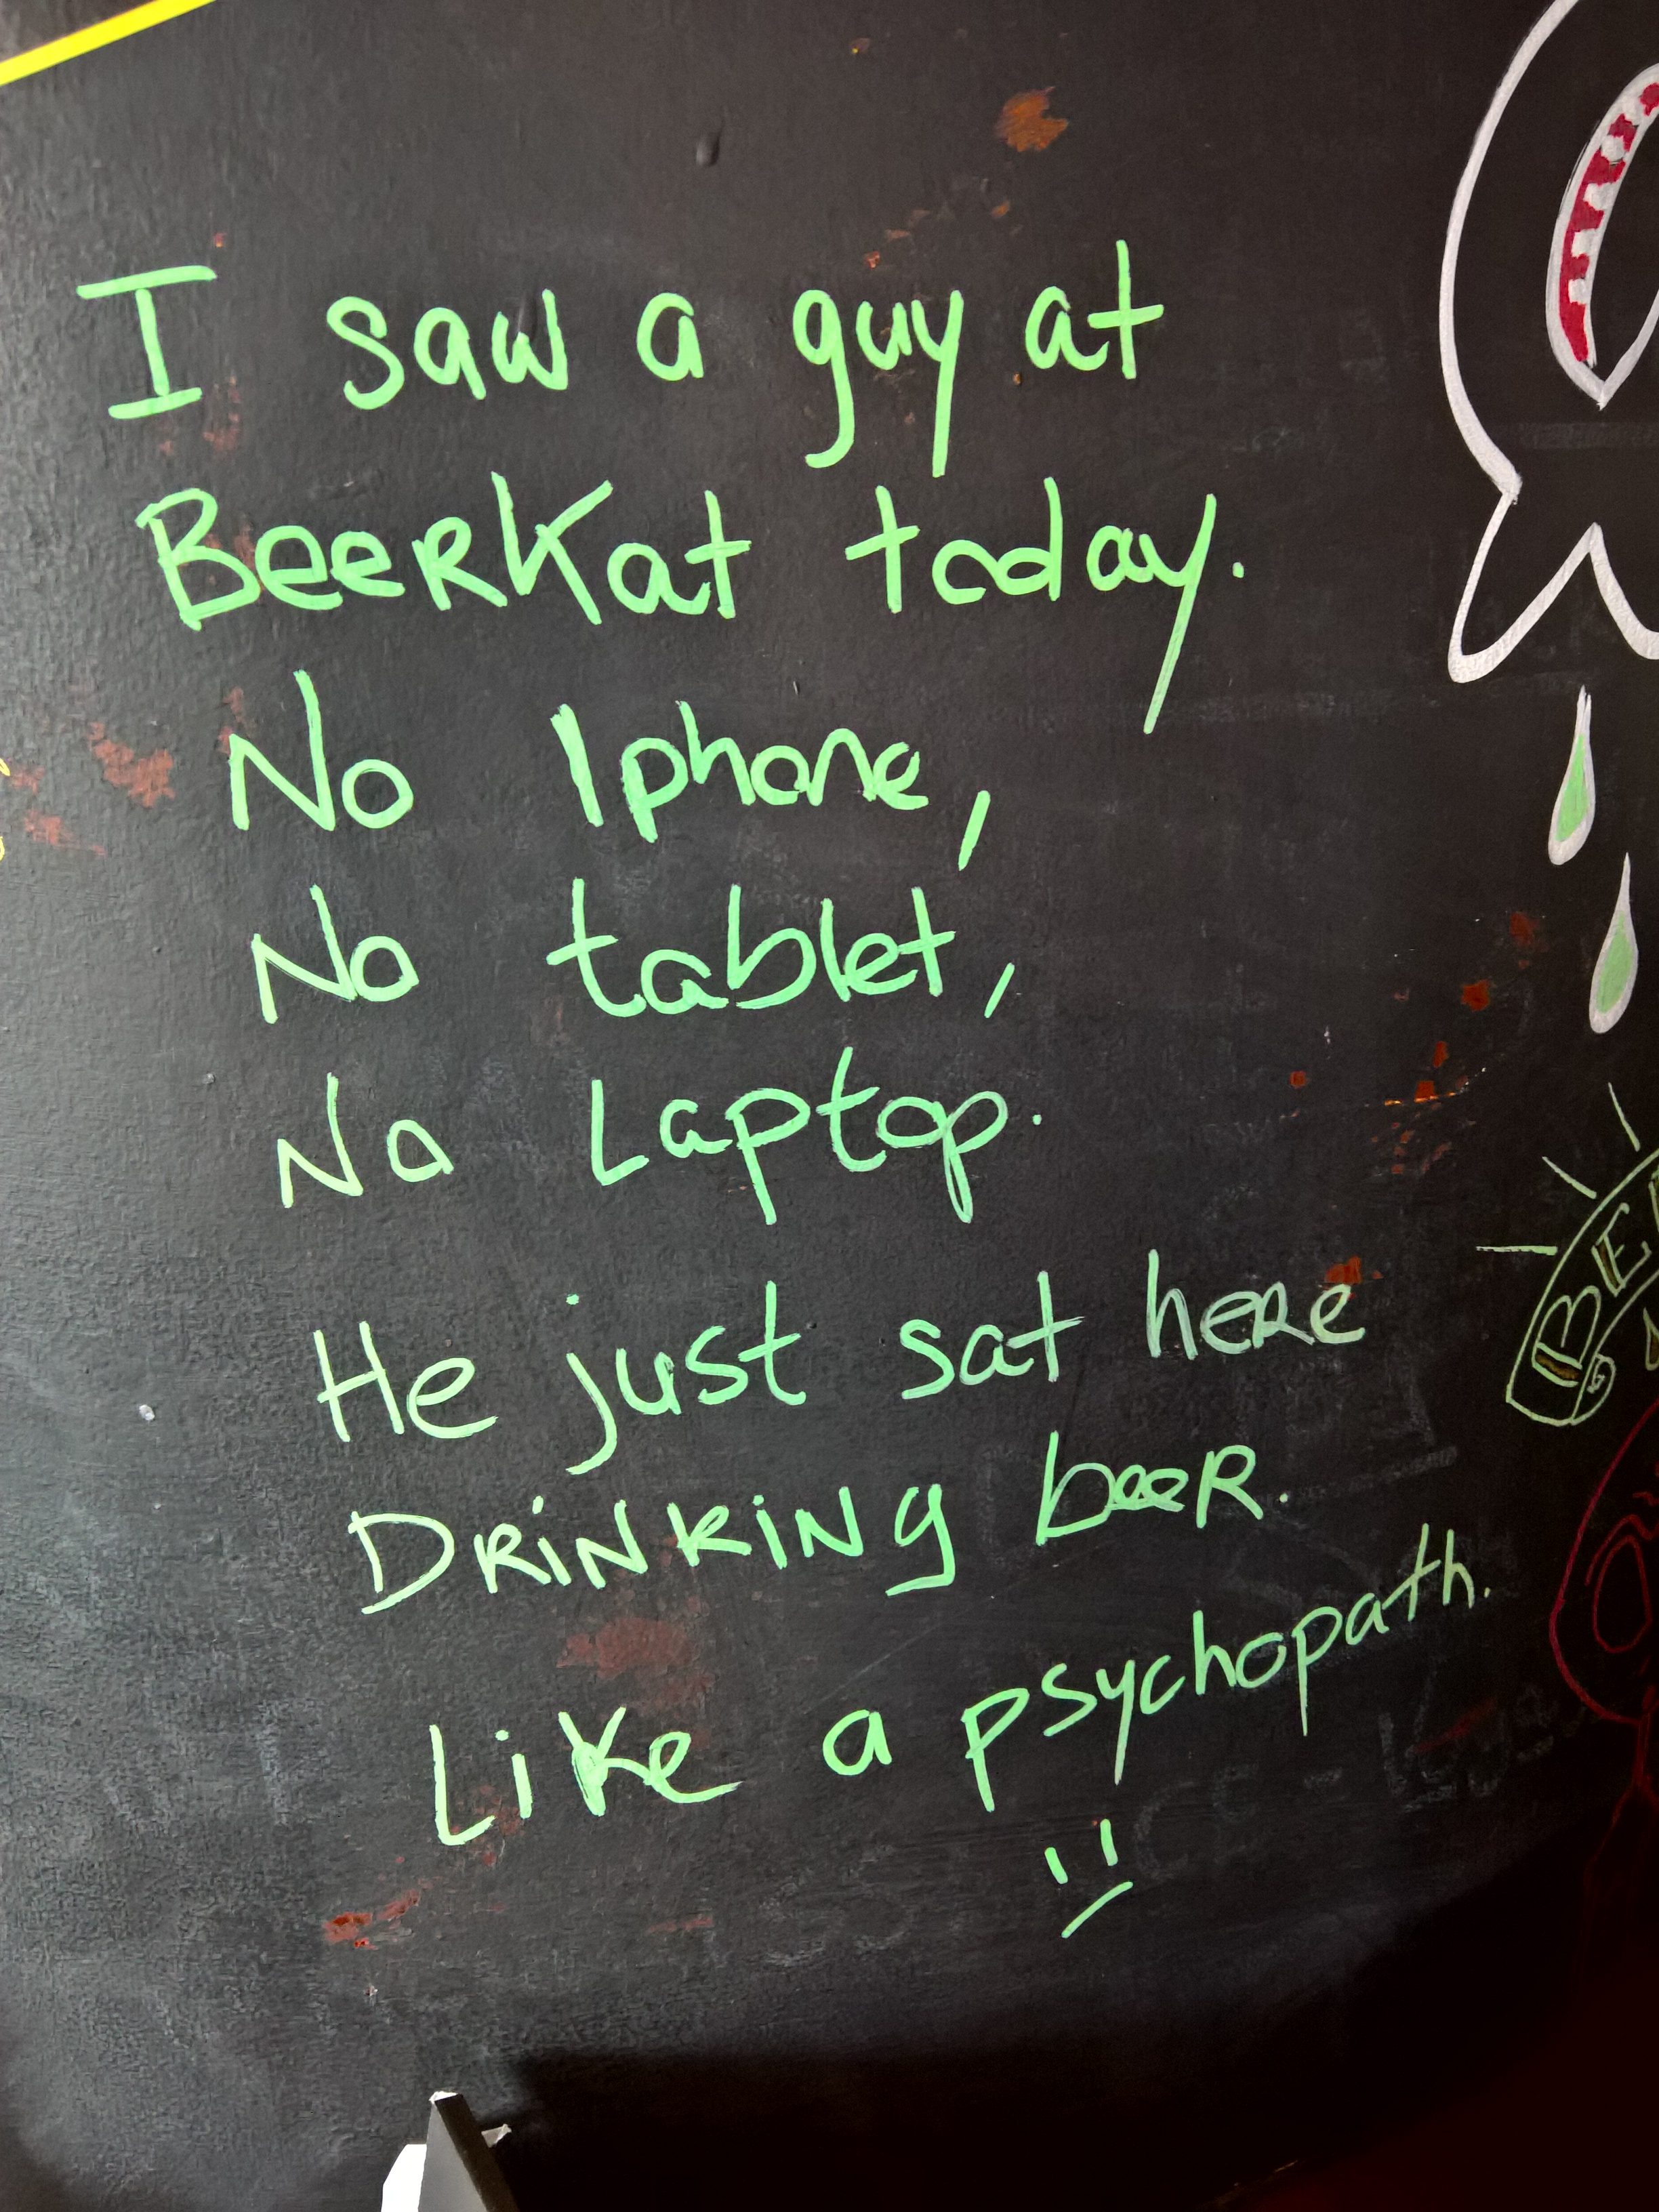 I saw a guy at
BeerKat today.
No Iphone,
No tablet,
No Laptop.
He just sat here
DRiNKiNg beeR.
Like a psychopath.